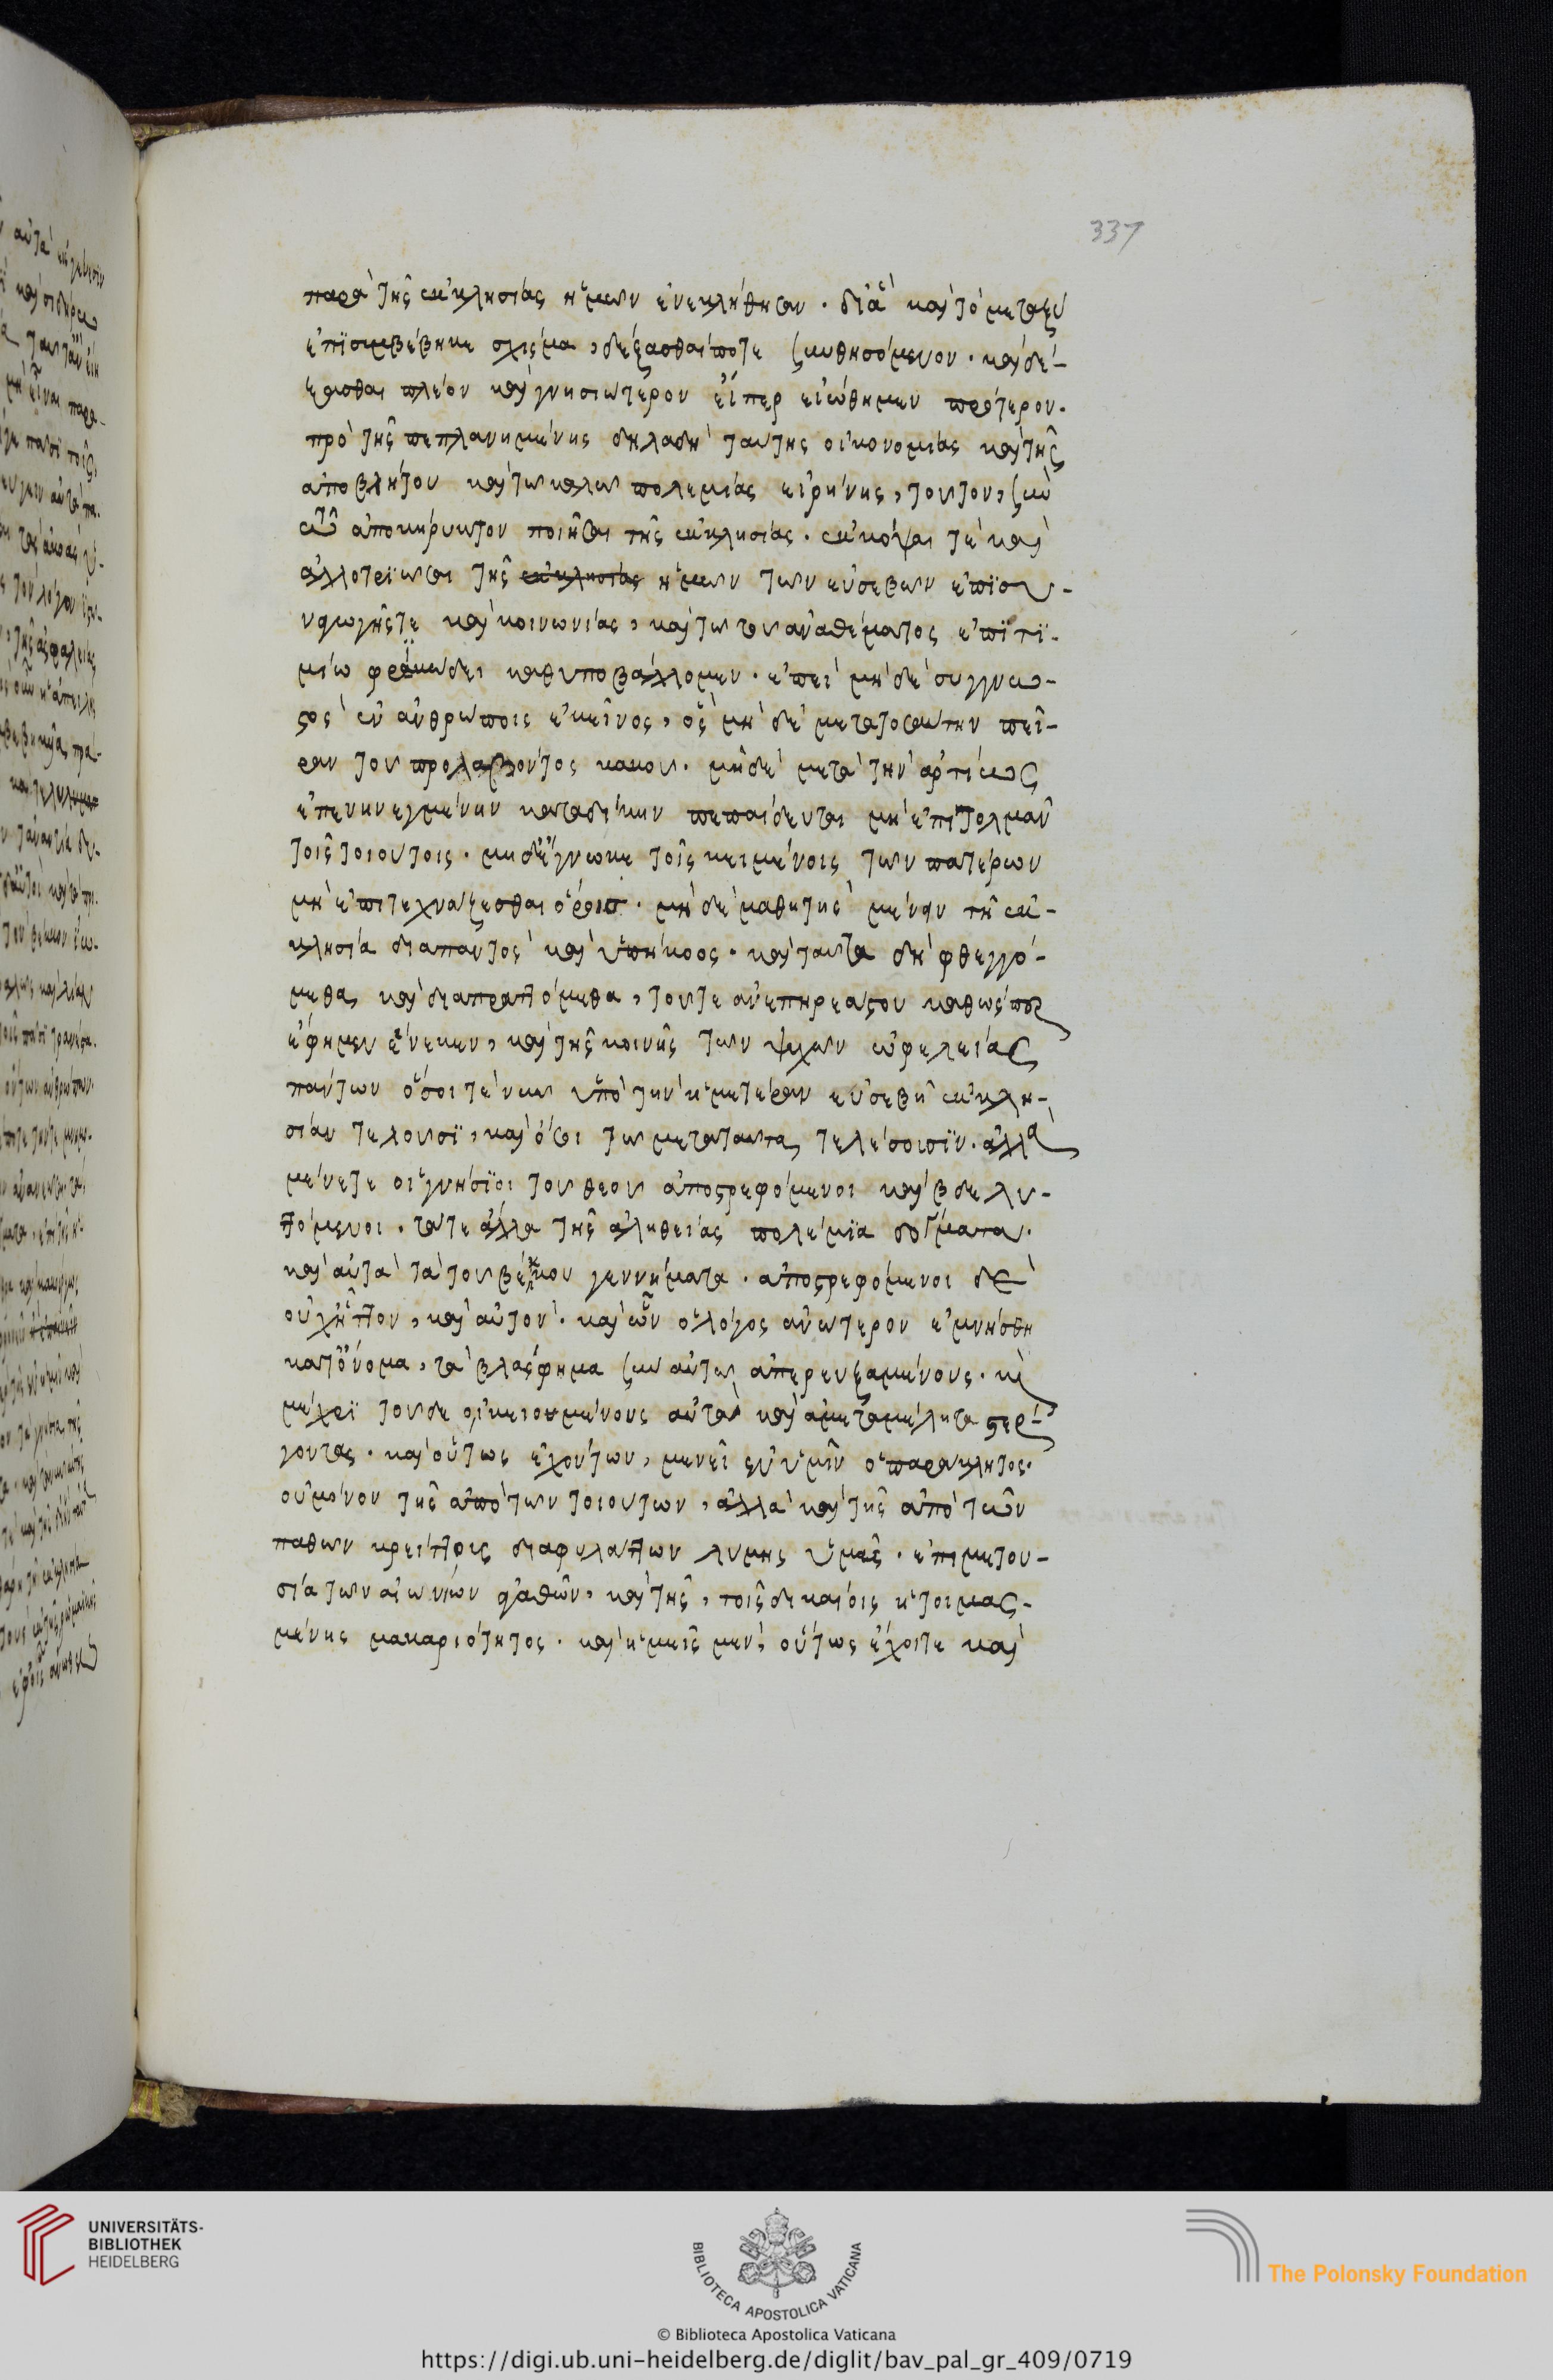 337
παρὰ τῆς ἐκκλησίας ἡμῶν ἐνεκλήθησαν. διὰ καὶ τὸ μεταξὺ
ἐπισυμβέβηκε σχίσμα, δέξασθαί ποτε συνθησόμενον. καὶ δέ-
χεσθαι πλέον καὶ γνησιώτερον εἴπερ εἰώθημεν πρότερον.
πρὸ τῆς πεπλανημένης δηλαδὴ ταύτης οἰκονομίας καὶ τῆς
ἀποβλήτου καὶ τῶ καλῶ πολεμίας εἰρήνης, τοῦτον, σὺν
ἀποκήρυκτον ποιῆσαι τῆς ἐκκλησίας. ἐκκόψαι τὲ καὶ
ἀλλοτριῶσαι τῆς ἐκκλησίας ἡμῶν τῶν εὐσεβῶν ἐπισυ-
ναγωγῆς τε καὶ κοινωνίας, καὶ τῶ τοῦ ἀναθέματος ἐπιτι-
μίω φρικώδει καθυποβάλλομεν. ἐπεὶ μὴ δὲ συγγνω-
στὸς ἐν ἀνθρώποις ἐκεῖνος, ὃς μὴ δὲ μετὰ τοσαύτην πεῖ-
ραν τοῦ προλαβόντος κακοῦ. μηδὲ μετὰ τὴν ἀρτίως
ἐπενηνεγμένην καταδίκην πεπαίδευται μὴ ἐπιτολμᾶν
τοῖς τοιούτοις. μηδ' ἔγνωκε τοῖς κειμένοις τῶν πατέρων
μὴ ἐπιτεχνάζεσθαι ὅροις. μὴ δὲ μαθητὴς μένειν τῆ ἐκ-
κλησία διαπαντὸς καὶ ὑπήκοος. καὶ ταῦτα δὴ φθεγγό-
μεθα καὶ διαπραττόμεθα, τοῦ τε ἀνεπηρεάστου καθώς που
ἔφημεν ἕνεκεν, καὶ τῆς κοινῆς τῶν ψυχῶν ὠφελείας
πάντων ὅσοι τὲ νῦν ὑπὸ τὴν ἡμετέραν εὐσεβῆ ἐκκλη-
σίαν τελοῦσι, καὶ ὅσοι τῶ μετὰ ταῦτα τελέσουσιν. ἀλλὰ
μένετε οἱ γνήσιοι τοῦ θεοῦ ἀποστρεφόμενοι καὶ βδελυ-
ττόμενοι. τά τε ἄλλα τῆς ἀληθείας πολέμια δόγματα.
καὶ αὐτὰ τὰ τοῦ βέκκου γεννήματα. ἀποστρεφόμενοι δὲ
οὐχ ἧττον, καὶ αὐτὸν. καὶ ὧν ὁ λόγος ἀνώτερον ἐμνήσθη
κατ' ὄνομα, τὰ βλάσφημα σὺν αὐτῶ ἀπερευξαμένους. καὶ
μέχρι τοῦδε οἰκειουμένους αὐτὰ καὶ ἀμεταμέλητα στέρ-
γοντας. καὶ οὕτως ἐχόντων, μενεῖ ἐν ὑμῖν ὁ παράκλητος.
οὐ μόνον τῆς ἀπὸ τῶν τοιούτων, ἀλλὰ καὶ τῆς ἀπὸ τῶν
παθῶν κρείττους διαφυλάττων λύμης ὑμᾶς. ἐπὶ μετου-
σία τῶν αἰωνίων ἀγαθῶν, καὶ τῆς, τοῖς δικαίοις ἡτοιμασ-
μένης μακαριότητος. καὶ ἡμεῖς μὲν οὕτως ἔχοιτε καὶ
UNIVERSITÄTS-
BIBLIOTHEK
HEIDELBERG
BIBLIOTECA APOSTOLICA VATICANA
The Polonsky Foundation
© Biblioteca Apostolica Vaticana
https://digi.ub.uni-heidelberg.de/diglit/bav_pal_gr_409/0719